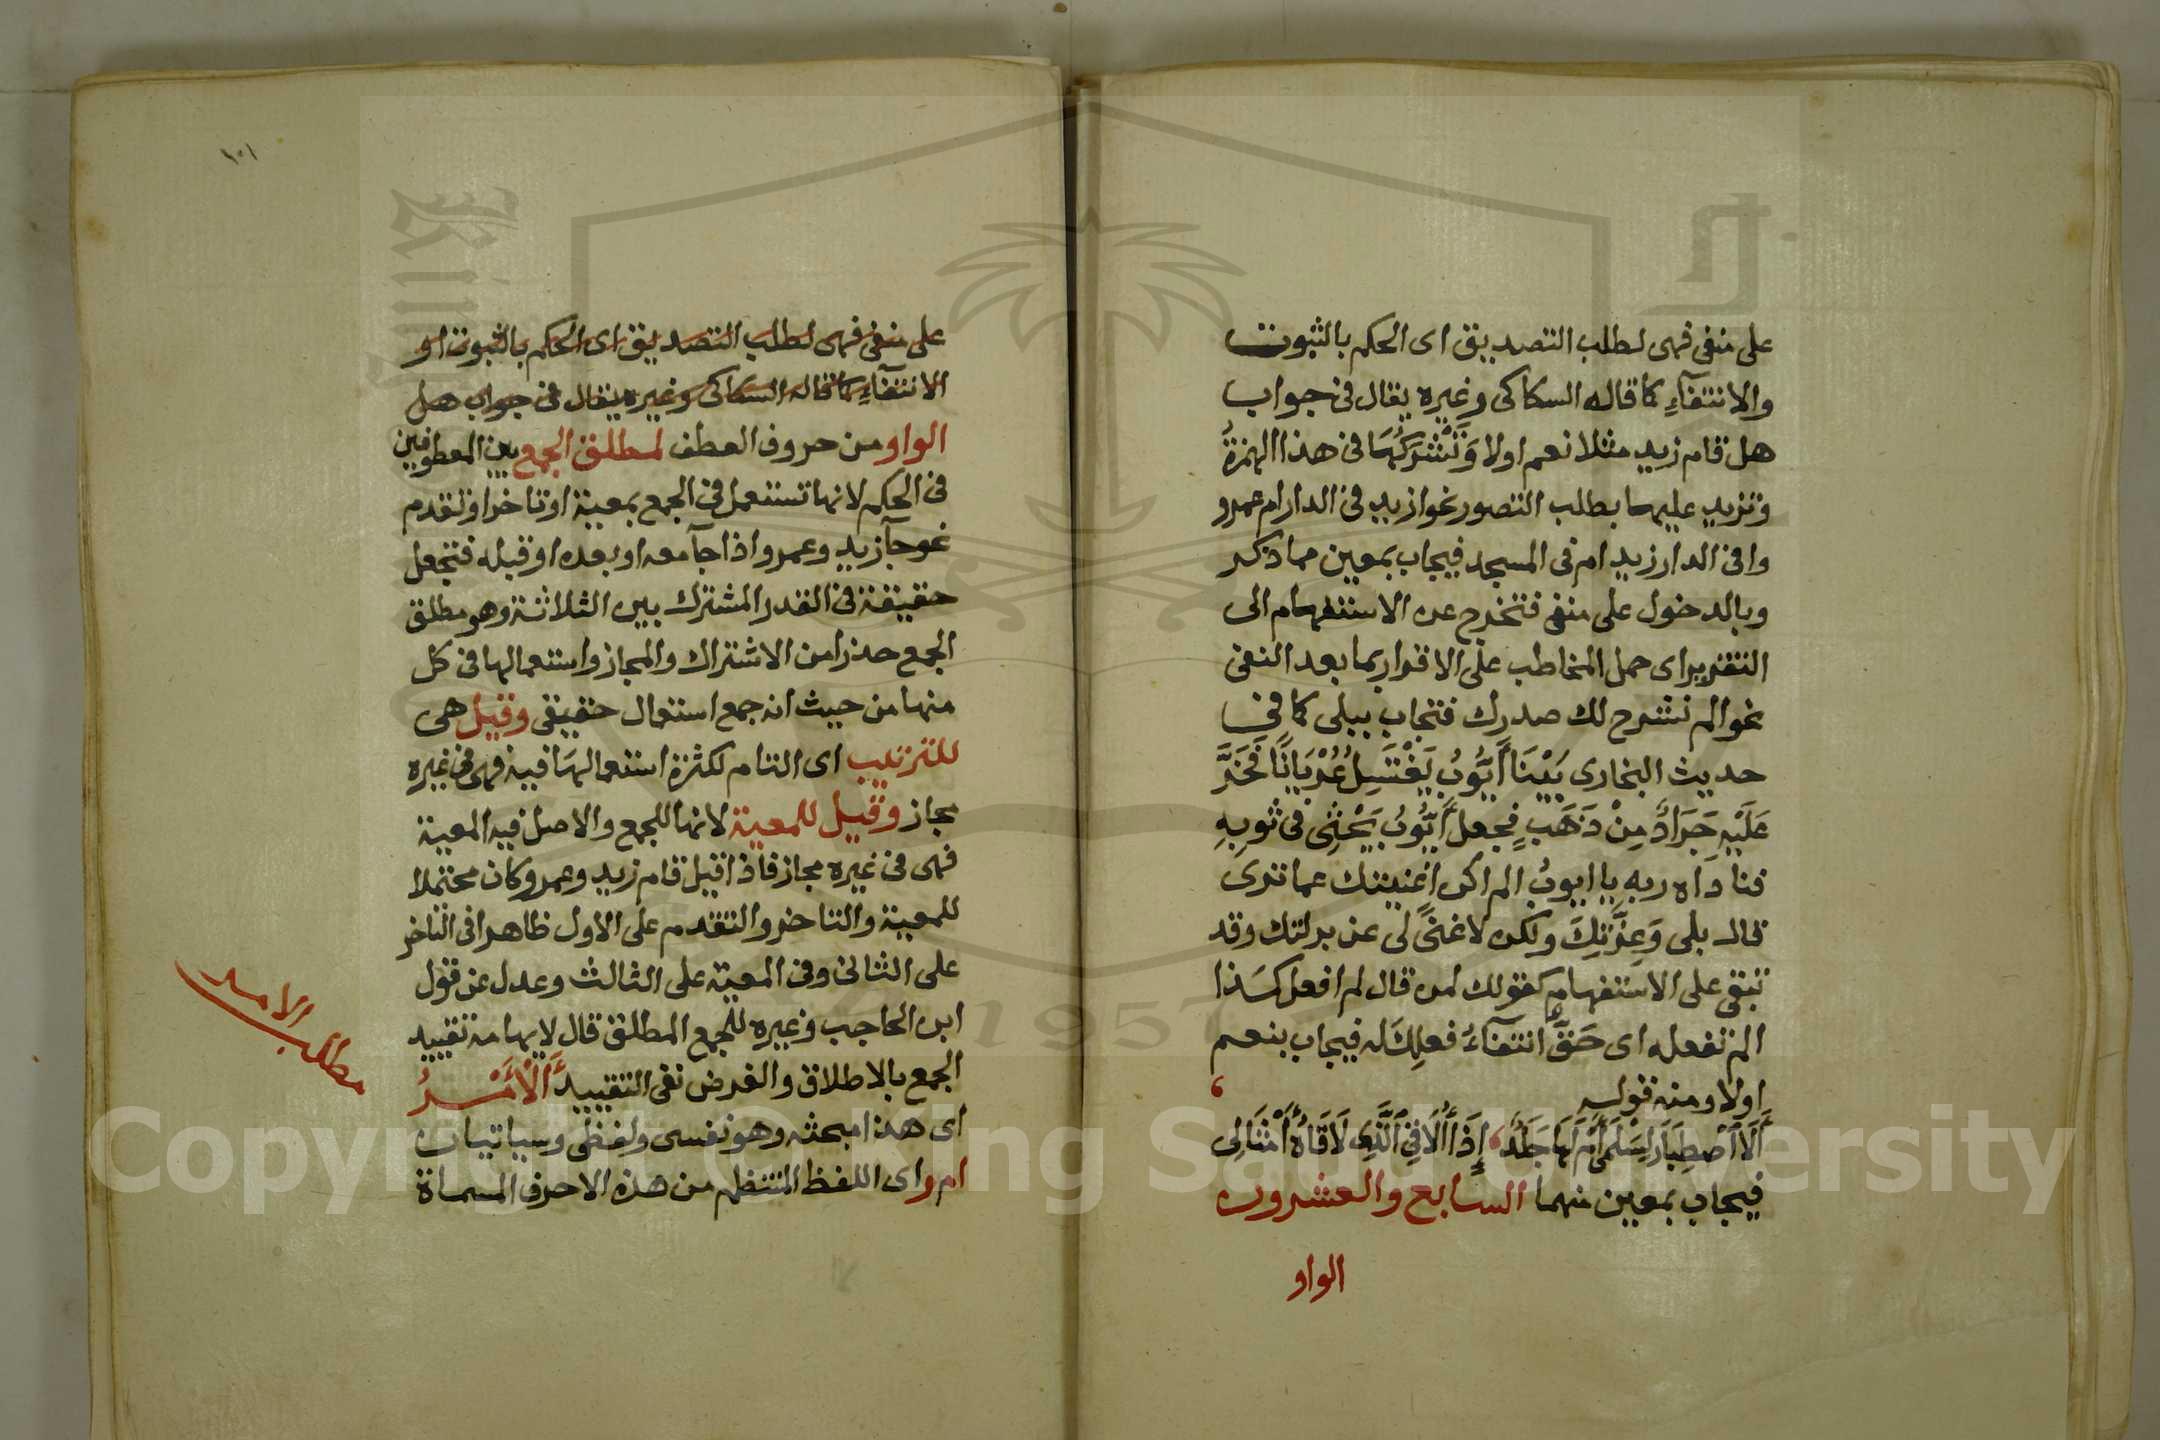 على منفى فهى لطلب التصديق اى الحكم بالثبوت
والانتفآء كما قاله السكاكى وغيره يقال فى جواب
هل قام زيد مثلا نعم اولا وَتَشْرَكُهَا فى هذا الهمزةُ
وتزيد عليها بطلب التصور نحو ازيد فى الدار ام عمرو
وافى الدار زيد ام فى المسجد فيجاب بمعين مما ذكر
وبالدخول على منفى فتخرج عن الاستفهام الى
التقرير اى حمل المخاطب على الاقرار بما بعد النفى
نحو الم نشرح لك صدرك فتجاب ببلى كما فى
حديث البخارى بَيْنَا أَيُّوبُ يَغْتَسِلُ عُرْيَانًا فَخَرَّ
عَلَيْهِ جَرَادٌ مِنْ ذَهَبٍ فجعل أَيُّوبُ يَحْثِى فى ثَوبِهِ
فناداه ربه يا ايوبُ الم اكن اغنيتك عما ترى
قال بلى وَعِزَّتِكَ ولكن لا غنىً لى عن بركتك وقد
تبقى على الاستفهام كقولك لمن قال لم افعل كَذا
الم تفعله اى حَقٌّ انتفآءُ فعلِكَ له فيجاب بنعم
اولا ومنه قوله
أَلَا ٱصْطِبَارَ لِسَلْمَى أَمْ لَهَا جَلَدٌ ، إِذَا أُلَاقِى ٱلَّذِى لَاقَاهُ أَمْثَالِى
فيجاب بمعين منهما السابع والعشرون
الواو
١٠١
على منفى فهى لطلب التصديق اى الحكم بالثبوت او
الانتفآء كما قاله السكاكى وغيره يقال فى جواب هل
الواو من حروف العطف لمطلق الجمع بين المعطوفين
فى الحكم لانها تستعمل فى الجمع بمعية او تاخر او تقدم
نحو جآ زيد وعمرو اذا جآ معه او بعده او قبله فتجعل
حقيقة فى القدر المشترك بين الثلاثة وهو مطلق
الجمع حذرا من الاشتراك والمجاز واستعمالها فى كل
منها من حيث انه جمع استعمال حقيقى وقيل هى
للترتيب اى التام لكثرة استعمالها فيه فهى فى غيره
مجاز وقيل للمعية لانها للجمع والاصل فيه المعية
فهى فى غيره مجاز فاذا قيل قام زيد وعمرو كان محتملا
للمعية والتاخر والتقدم على الاول ظاهرا فى التاخر
على الثانى وفى المعية على الثالث وعدل عن قول
ابن الحاجب وغيره للجمع المطلق قال لايهامه تقييد
الجمع بالاطلاق والغرض نفى التقييد أَلْأَمْرُ
اى هذا مبحثه وهو نفسى ولفظى وسياتيان
ام ر اى اللفظ المنتظم من هذه الاحرف المسماة
مطلب الامر